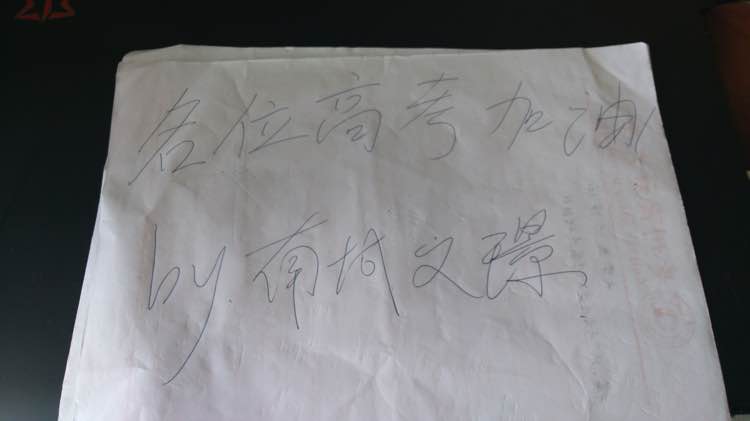 各位高考加油
by.南城文璟